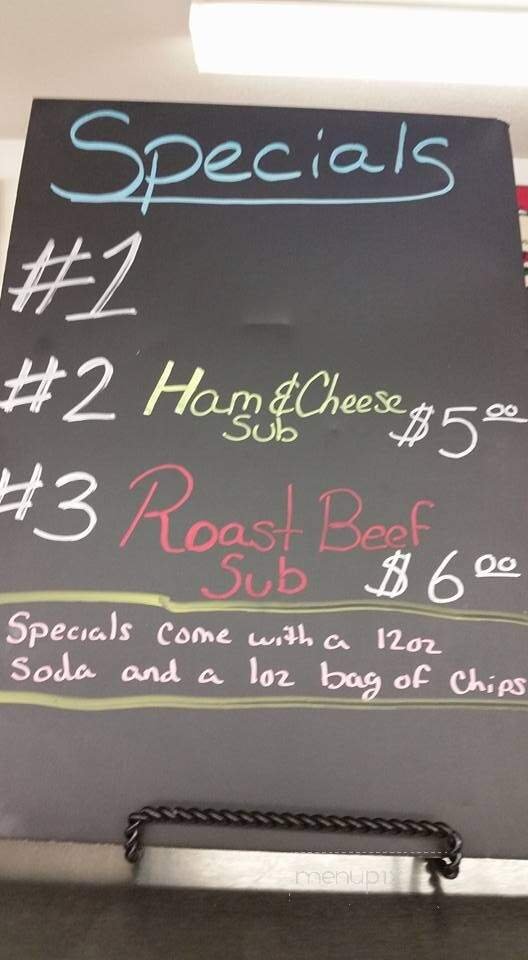 Specials
#1
#2 Ham & Cheese
Sub $5.00
#3 Roast Beef
Sub $6.00
Specials come with a 12oz
Soda and a 1oz bag of Chips
menupix